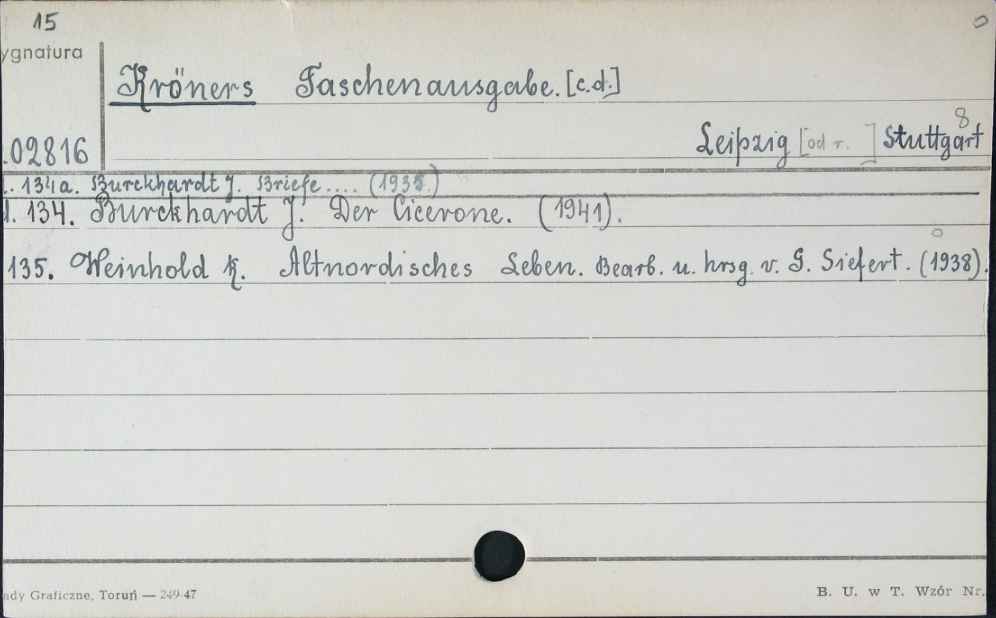 15
ygnatura
Kröners Taschenausgabe. [c.d.]
8
.02816
Leipzig [od r. ] Stuttgart
. 134a. Burckhardt J. Briefe .... (1935)
d. 134. Burckhardt J. Der Cicerone. (1941).
135. Weinhold K. Altnordisches Leben. Bearb. u. hrsg. v. G. Siefert. (1938).
ady Graficzne, Toruń — 249-47
B. U. w T. Wzór Nr.